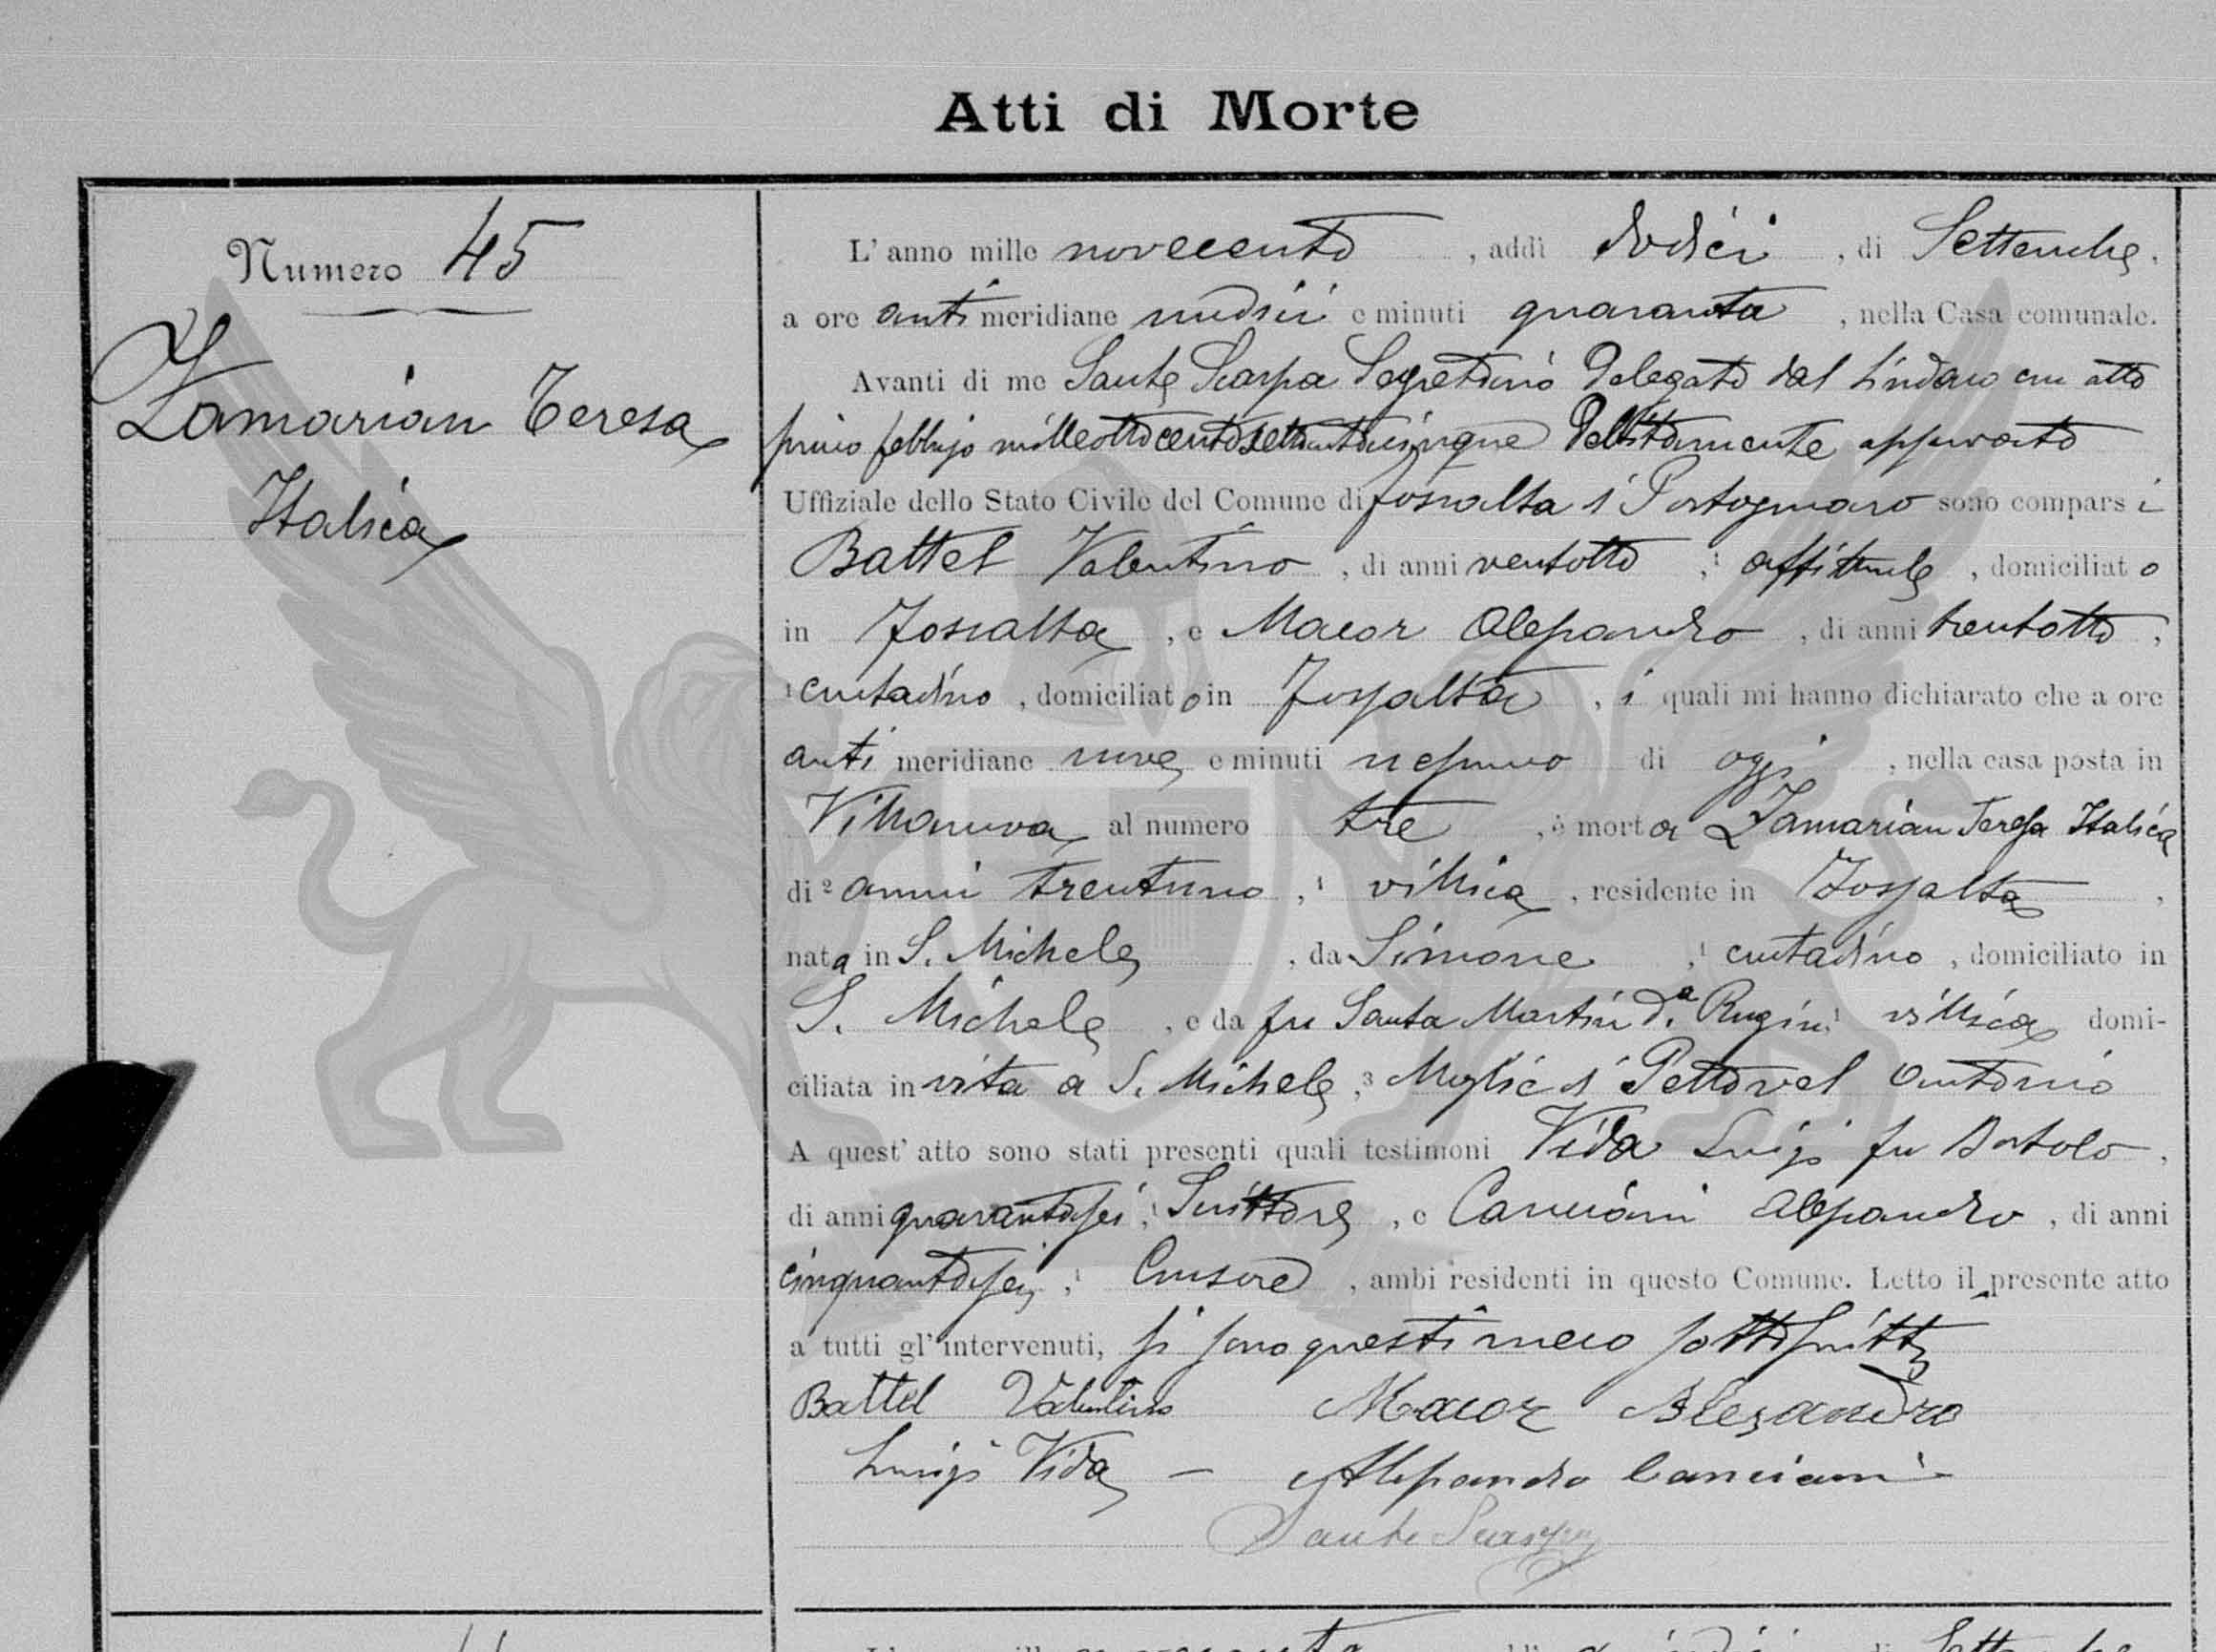 Atti di Morte
Numero 45
Zamarian Teresa
Italica
L'anno mille novecento, addì dodici, di Settembre,
a ore anti meridiane undici e minuti quaranta, nella Casa comunale.
Avanti di me Sante Scarpa Segretario Delegato dal Sindaco con atto
primo febbrajo milleottocentosettantacinque debitamente approvato
Uffiziale dello Stato Civile del Comune di Fossalta di Portogruaro sono comparsi
Battel Valentino, di anni ventotto, ¹ affittuale, domiciliato
in Fossalta, e Macor Alessandro, di anni trentotto,
¹ contadino, domiciliato in Fossalta, i quali mi hanno dichiarato che a ore
anti meridiane nove e minuti nessuno di oggi, nella casa posta in
Villanova al numero tre, è morta Zamarian Teresa Italica
di ² anni trentuno, ¹ villica, residente in Fossalta,
nata in S. Michele, da Simone, ¹ contadino, domiciliato in
S. Michele, e da fu Santa Martin d.ª Rugin, ¹ villica domi-
ciliata in vita a S. Michele, ³ Moglie di Pettovel Antonio
A quest'atto sono stati presenti quali testimoni Vida Luigi fu Bortolo,
di anni quarantasei, ¹ Scrittore, e Canciani Alessandro, di anni
cinquantasei, ¹ Cursore, ambi residenti in questo Comune. Letto il presente atto
a tutti gl'intervenuti, si sono questi meco sottoscritti
Battel Valentino Macor Alesandro
Luigi Vida — Alessandro Canciani
Sante Scarpa